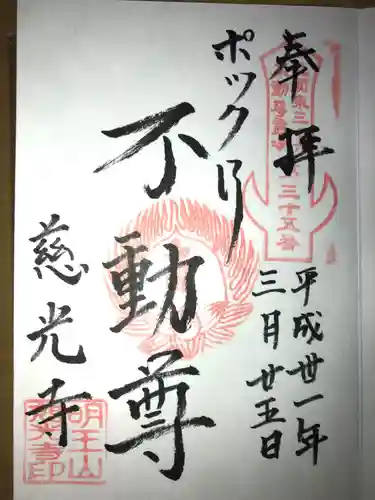 奉拝
平成廿一年
三月廿五日
ポックリ
不動尊
慈光寺
三十五番
明王山
慈光寺印